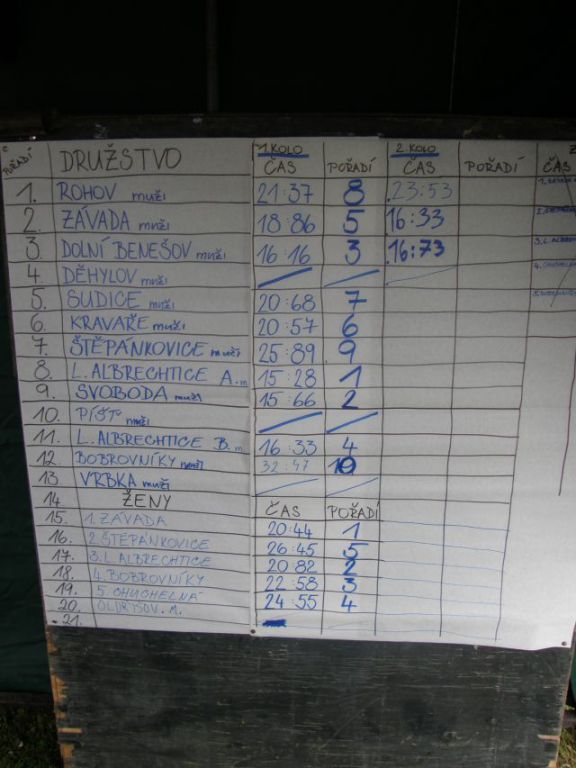 1. KOLO 2. KOLO
POŘADÍ DRUŽSTVO ČAS POŘADÍ ČAS POŘADÍ ČAS
1. ROHOV muži 21:37 8 23:53
2. ZÁVADA muži 18:86 5 16:33
3. DOLNÍ BENEŠOV muži 16:16 3 16:73
4. DĚHYLOV muži
5. SUDICE muži 20:68 7
6. KRAVAŘE muži 20:57 6
7. ŠTĚPÁNKOVICE muži 25:89 9
8. L. ALBRECHTICE A. m 15:28 1
9. SVOBODA muži 15:66 2
10. PÍŠŤ muži
11. L. ALBRECHTICE B. m 16:33 4
12. BOBROVNÍKY muži 32:47 10
13 VRBKA muži
14 ŽENY ČAS POŘADÍ
15. 1. ZÁVADA 20:44 1
16. 2. ŠTĚPÁNKOVICE 26:45 5
17. 3. L. ALBRECHTICE 20 82 2
18. 4. BOBROVNÍKY 22:58 3
19. 5. CHUCHELNÁ 24:55 4
20. OLDŘIŠOV. M.
21.